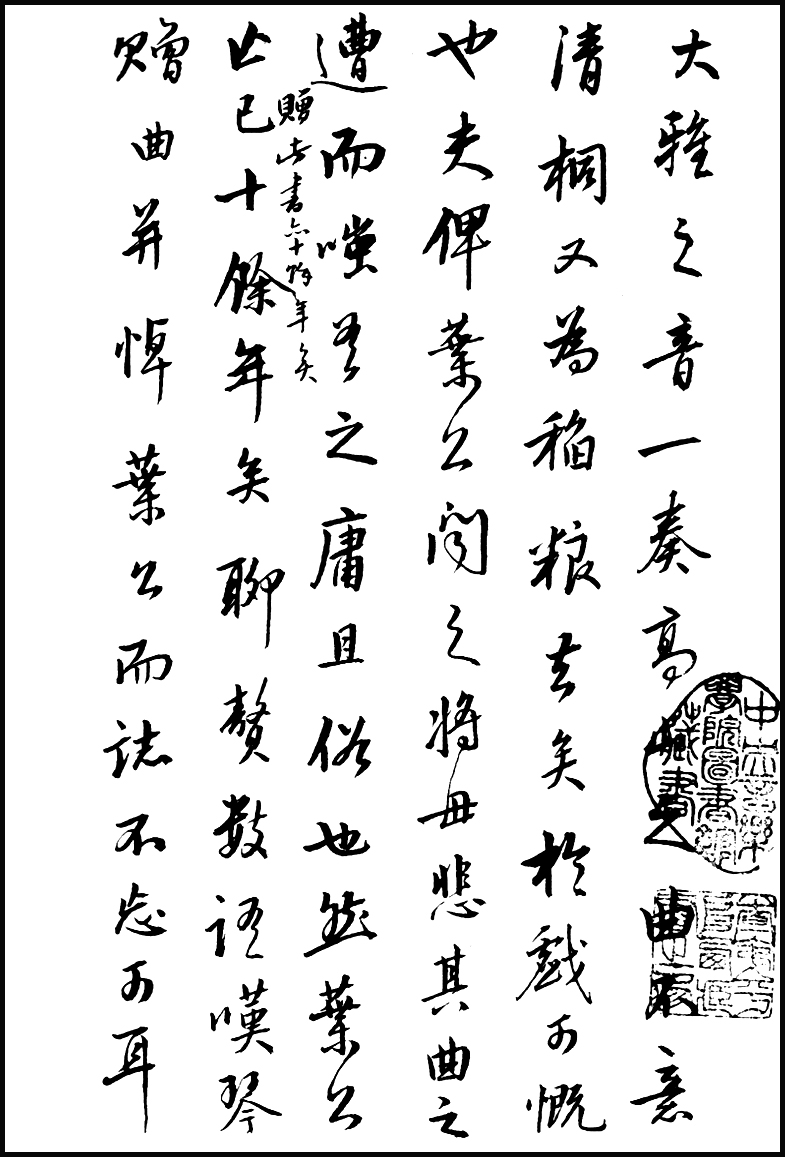 大雅之音一奏高山之曲不意
清桐又為稻粮去矣於戲可慨
也夫俾葉公聞之將毋悲其曲之
遭而嗤吾之庸且俗也然葉公
贈此書亦十餘年矣
亡已十餘年矣聊贅數語嘆琴
贈曲并悼葉公而誌不忘可耳
中央音樂學院圖書館藏書